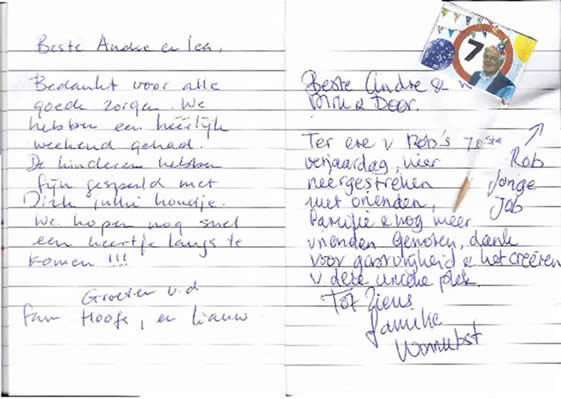 Beste Andre en Lea,
Bedankt voor alle
goede zorgen. We
hebben een heerlijk
weekend gehad.
De kinderen hebben
fijn gespeeld met
Dirk jullie hondje.
We hopen nog snel
een keertje langs te
komen !!!
Groeten v.d
fam Hoofs, en Lieuw
7
Beste Andre &
Door.
Ter ere v Rob's 70ste
verjaardag, hier
neergestreken
met vrienden,
familie & nog meer
vrienden. Genoten, dank
voor gastvrijheid & het creëren
v deze unieke plek.
Tot Ziens
familie
Rob
Jonge
Job